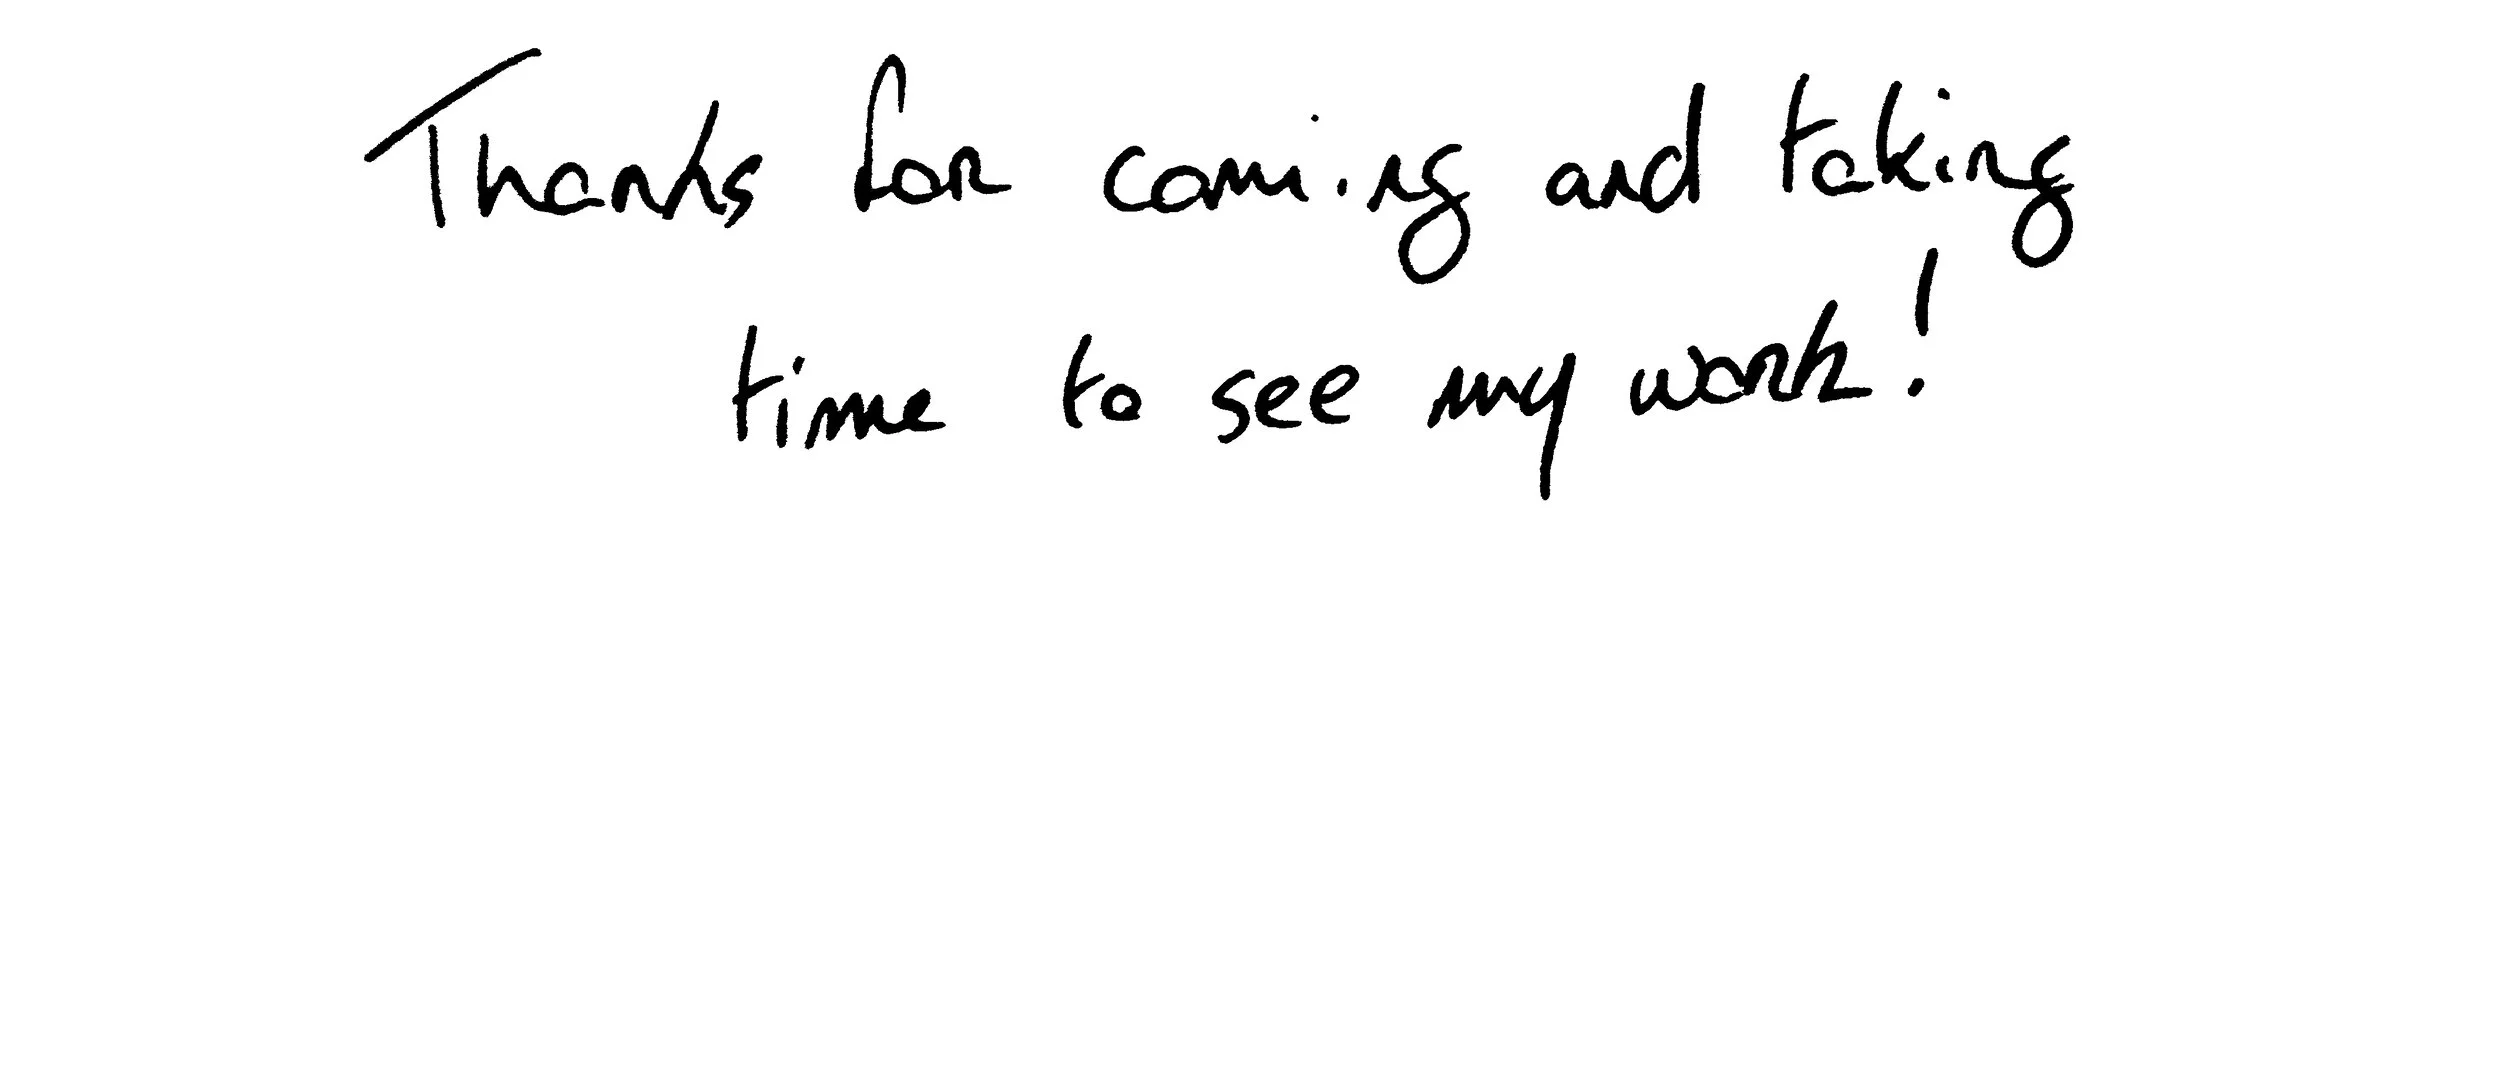 Thanks for coming and taking
time to see my work!